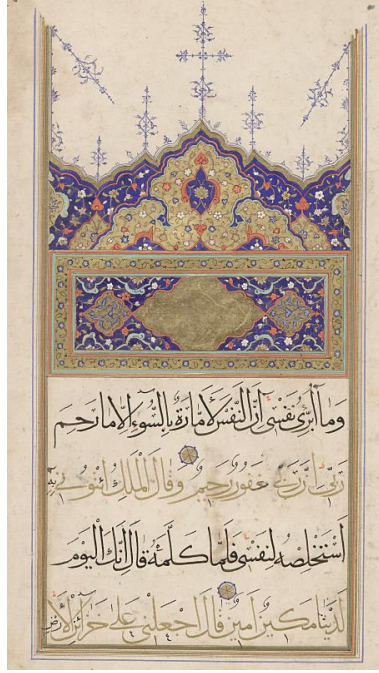 وَمَا أُبَرِّئُ نَفْسِي إِنَّ النَّفْسَ لَأَمَّارَةٌ بِالسُّوءِ إِلَّا مَا رَحِمَ
رَبِّي إِنَّ رَبِّي غَفُورٌ رَحِيمٌ وَقَالَ الْمَلِكُ ائْتُونِي بِهِ
أَسْتَخْلِصْهُ لِنَفْسِي فَلَمَّا كَلَّمَهُ قَالَ إِنَّكَ الْيَوْمَ
لَدَيْنَا مَكِينٌ أَمِينٌ قَالَ اجْعَلْنِي عَلَى خَزَائِنِ الْأَرْضِ